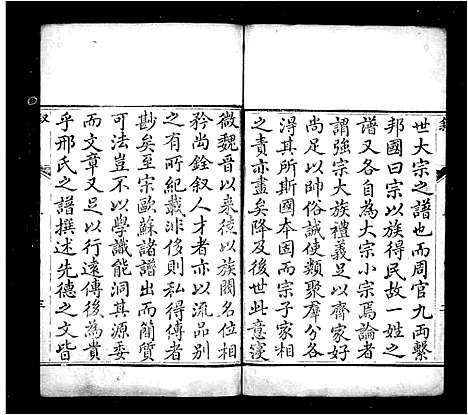 世大宗之譜也而周官九兩繫
邦國曰宗以族得民故一姓之
譜又各自為大宗小宗焉論者
謂強宗大族禮義足以齊家好
尚足以帥俗誠使類聚羣分各
得其所斯國本固而宗子家相
之責亦盡矣降及後世此意寖
微魏晉以来徒以族閥名位相
矜尚銓叙人才者亦以流品別
之有所紀載非侈則私得傳者
尠矣至宋歐蘇諸譜出而簡質
可法豈不以學識能洞其源委
而文章又足以行遠傳後為貴
乎邢氏之譜撰述先德之文皆
叙
三